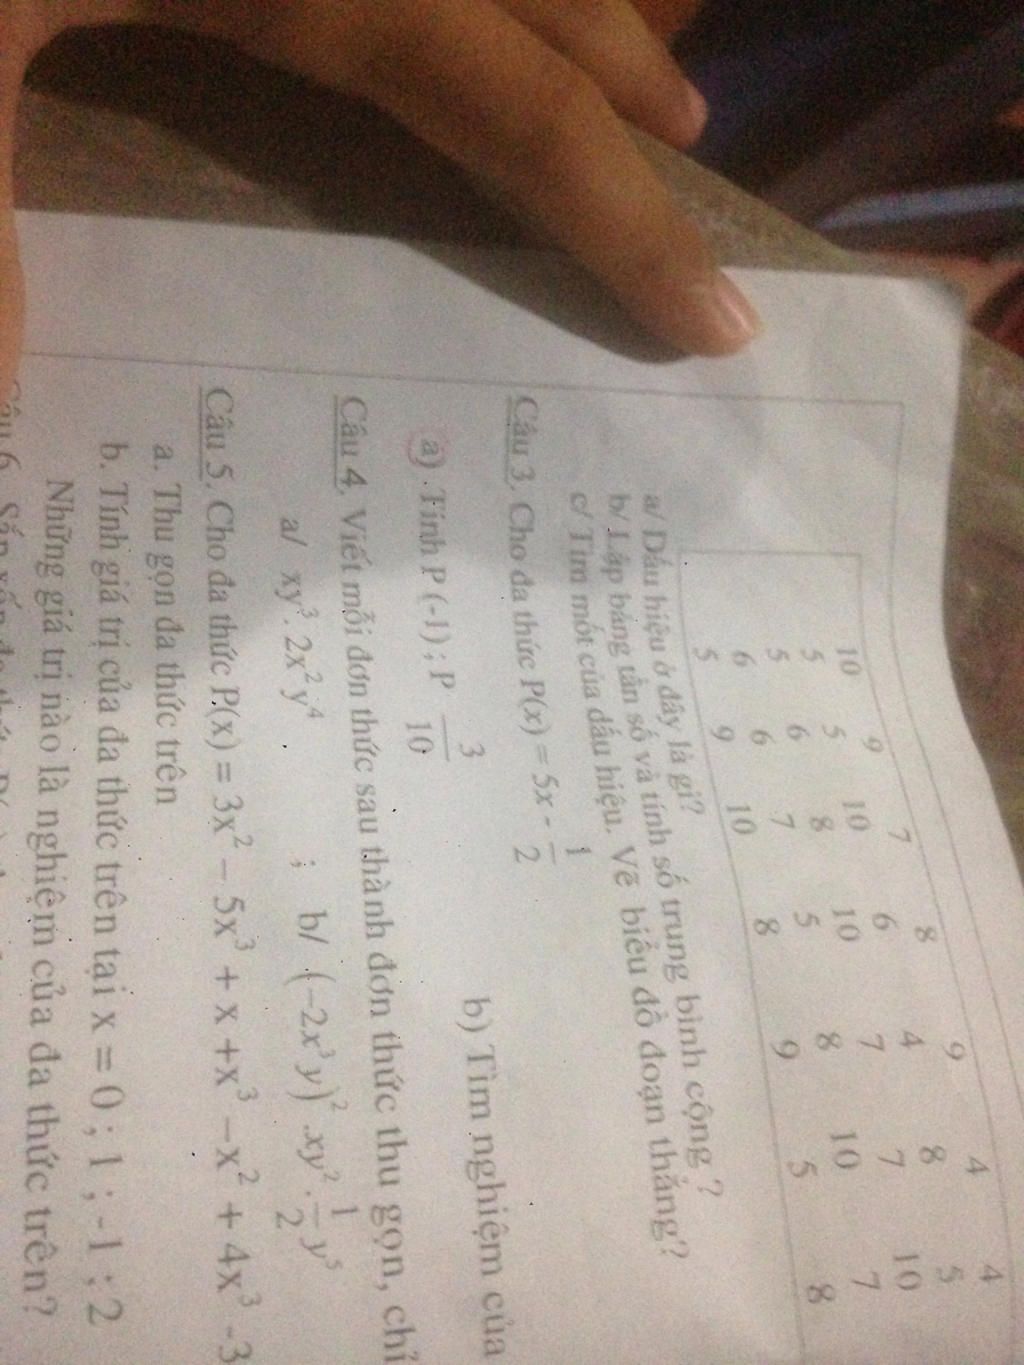 10 9 7 8 9 4 4
5 5 10 6 4 8 5
5 6 8 10 7 7 10
6 6 7 5 8 10 7
5 9 10 8 9 5 8
a/ Dấu hiệu ở đây là gì?
b/ Lập bảng tần số và tính số trung bình cộng ?
c/ Tìm mốt của dấu hiệu. Vẽ biểu đồ đoạn thẳng?
Câu 3. Cho đa thức P(x) = 5x - 1/2
a) .Tính P (-1) ; P 3/10 b) Tìm nghiệm của
Câu 4. Viết mỗi đơn thức sau thành đơn thức thu gọn, chỉ
a/ xy³. 2x²y⁴ ; b/ (−2x³y)².xy².1/2y⁵
Câu 5. Cho đa thức P(x) = 3x² – 5x³ + x +x³ –x² + 4x³ -3
a. Thu gọn đa thức trên
b. Tính giá trị của đa thức trên tại x = 0 ; 1 ; -1 ; 2
Những giá trị nào là nghiệm của đa thức trên?
Câu 6. Sắp xếp đa thức